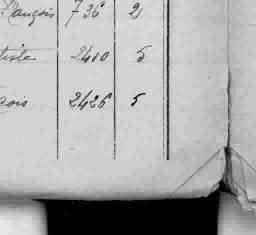 François 736 2
tiste 2400 5
çois 2426 5